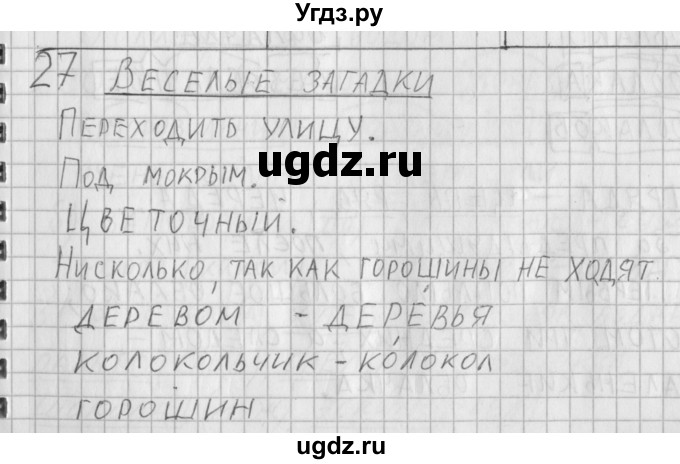 Угдз.ру
27 Веселые загадки
Переходить улицу.
Под мокрым.
ugdz.ru
Цветочный.
Нисколько, так как горошины не ходят.
деревом - дере́вья
колокольчик - ко́локол
горошин
ugdz.ru